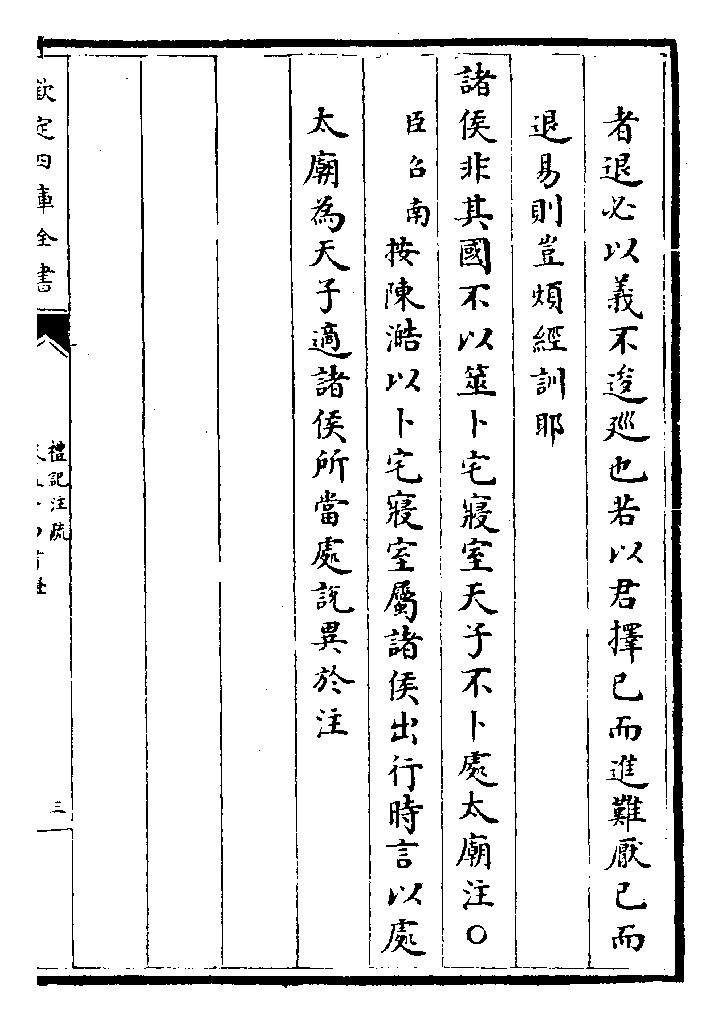 者退必以義不逡廵也若以君擇已而進難厭已而
退易則豈煩經訓耶
諸侯非其國不以筮卜宅寢室天子不卜處太廟注○
臣召南按陳澔以卜宅寢室屬諸侯出行時言以處
太廟為天子適諸侯所當處說異於注
欽定四庫全書
禮記注疏
三